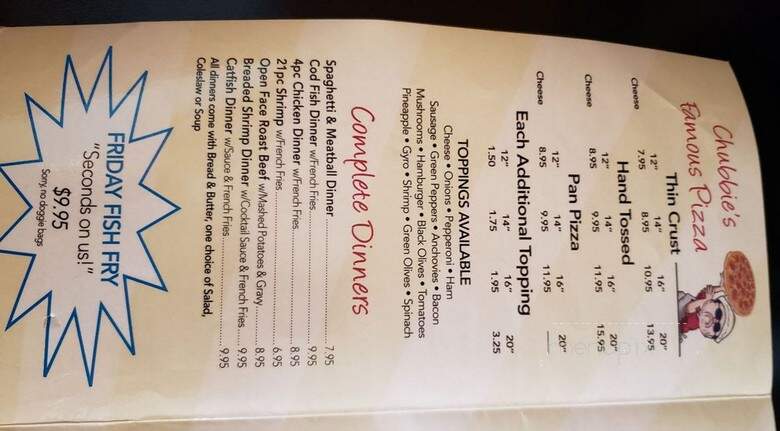 Chubbie's
Famous Pizza
Thin Crust
12" 14" 16" 20"
Cheese 7.95 8.95 10.95 13.95
Hand Tossed
12" 14" 16" 20"
Cheese 8.95 9.95 11.95 15.95
Pan Pizza
12" 14" 16" 20"
Cheese 8.95 9.95 11.95
Each Additional Topping
12" 14" 16" 20"
1.50 1.75 1.95 3.25
TOPPINGS AVAILABLE
Cheese • Onions • Pepperoni • Ham
Sausage • Green Peppers • Anchovies • Bacon
Mushrooms • Hamburger • Black Olives • Tomatoes
Pineapple • Gyro • Shrimp • Green Olives • Spinach
Complete Dinners
Spaghetti & Meatball Dinner 7.95
Cod Fish Dinner w/French Fries 9.95
4pc Chicken Dinner w/French Fries 8.95
21pc Shrimp w/French Fries 6.95
Open Face Roast Beef w/Mashed Potatoes & Gravy 8.95
Breaded Shrimp Dinner w/Cocktail Sauce & French Fries 9.95
Catfish Dinner w/Sauce & French Fries 9.95
All dinners come with Bread & Butter, one choice of Salad,
Coleslaw or Soup
FRIDAY FISH FRY
"Seconds on us!"
$9.95
Sorry, no doggie bags